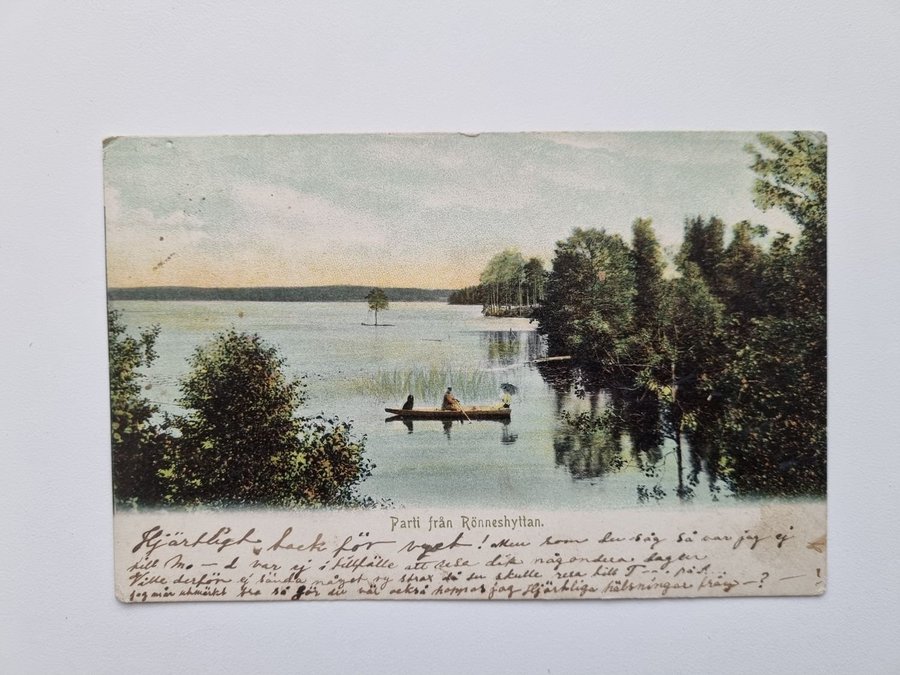 Parti från Rönneshyttan.
Hjärtligt tack för vyet! Men som du såg så var jag ej
till M. — d var ej i tillfälle att resa dit någondera dagen
Ville derför ej sända något vy strax då du skulle resa till T
jag mår utmärkt bra så gör du väl också hoppas jag Hjärtliga hälsningar från — ? — ?